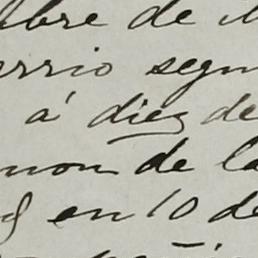 bre de
errio segun
á diez de
non de la
en 10 de